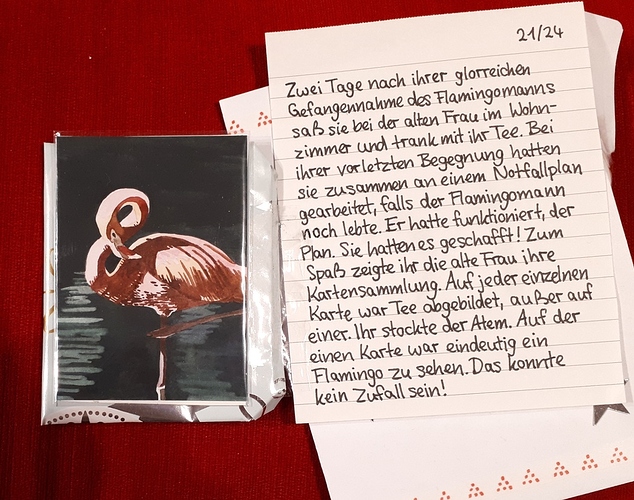 21/24
Zwei Tage nach ihrer glorreichen
Gefangennahme des Flamingomanns
saß sie bei der alten Frau im Wohn-
zimmer und trank mit ihr Tee. Bei
ihrer vorletzten Begegnung hatten
sie zusammen an einem Notfallplan
gearbeitet, falls der Flamingomann
noch lebte. Er hatte funktioniert, der
Plan. Sie hatten es geschafft! Zum
Spaß zeigte ihr die alte Frau ihre
Kartensammlung. Auf jeder einzelnen
Karte war Tee abgebildet, außer auf
einer. Ihr stockte der Atem. Auf der
einen Karte war eindeutig ein
Flamingo zu sehen. Das konnte
kein Zufall sein!